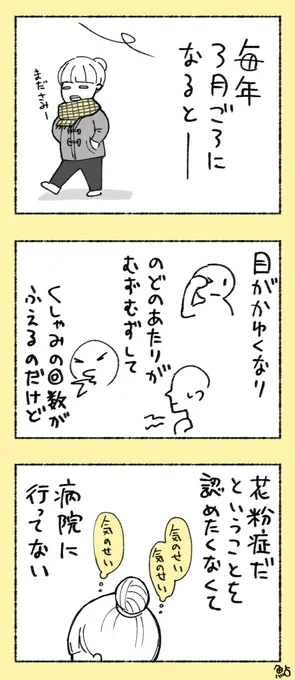 毎年
3月ごろに
なるとー
まださみー
目がかゆくなり
のどのあたりが
むずむずして
くしゃみの回数が
ふえるのだけど
花粉症だ
ということを
認めたくなくて
気のせい
気のせい
気のせい
病院に
行ってない
鮎